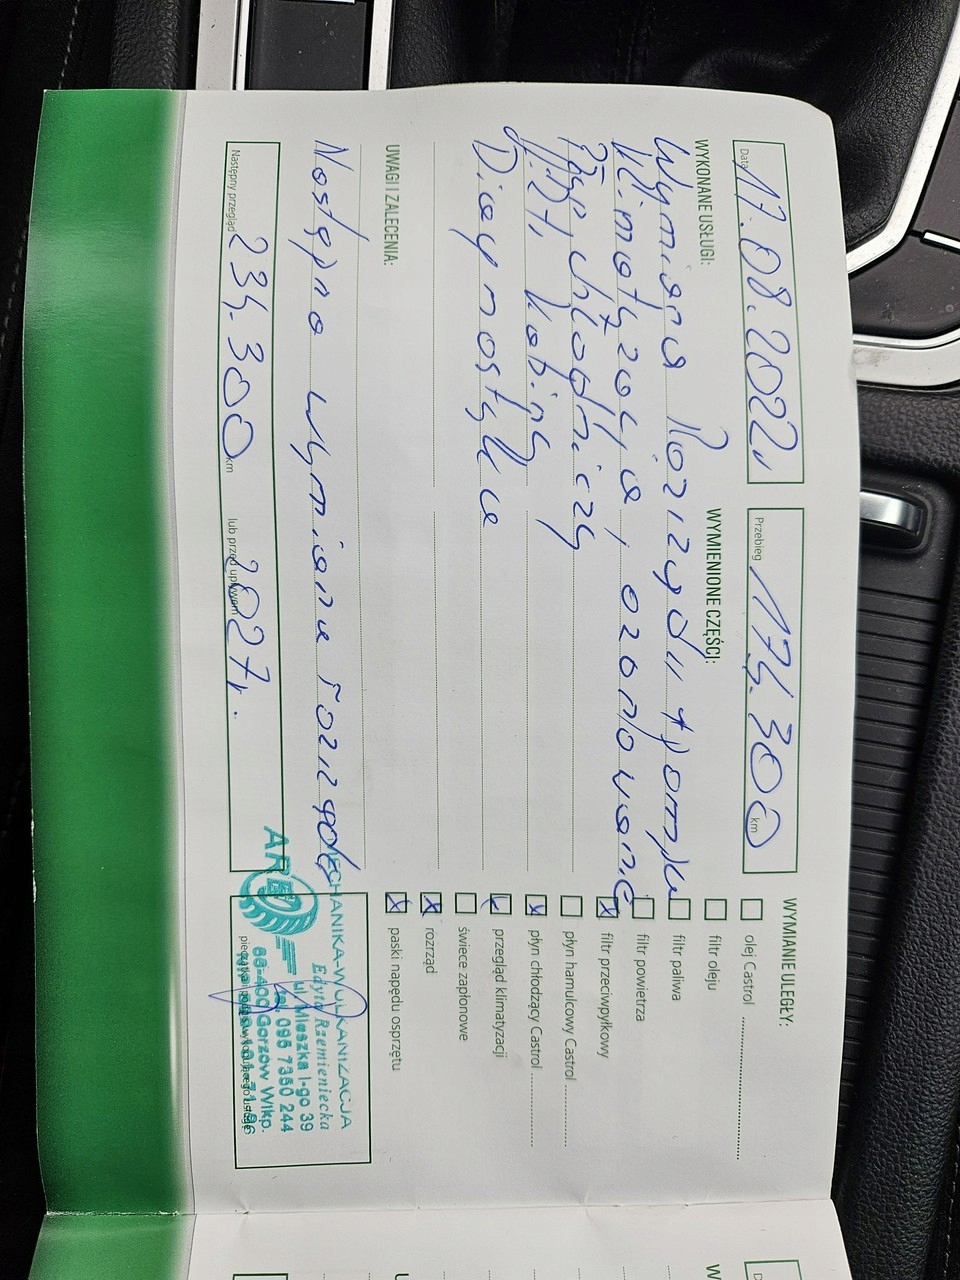 Data 17.08.2022r
Przebieg 174.300 km
WYKONANE USŁUGI:
WYMIENIONE CZĘŚCI:
Wymiana Rozrządu + pompa
Klimatyzacja, ozonowanie
Płyn chłodniczy
Diagnostyka
UWAGI I ZALECENIA:
Następna wymiana rozrządu
Następny przegląd 234.300 km lub przed upływem 2027r.
WYMIANIE ULEGŁY:
olej Castrol
filtr oleju
filtr paliwa
filtr powietrza
filtr przeciwpyłkowy
płyn hamulcowy Castrol
płyn chłodzący Castrol
przegląd klimatyzacji
świece zapłonowe
rozrząd
paski napędu osprzętu
MECHANIKA-WULKANIZACJA
Edyta Rzemieniecka
ul. Mieszka I-go 39
tel. 095 7350 244
66-400 Gorzów Wlkp.